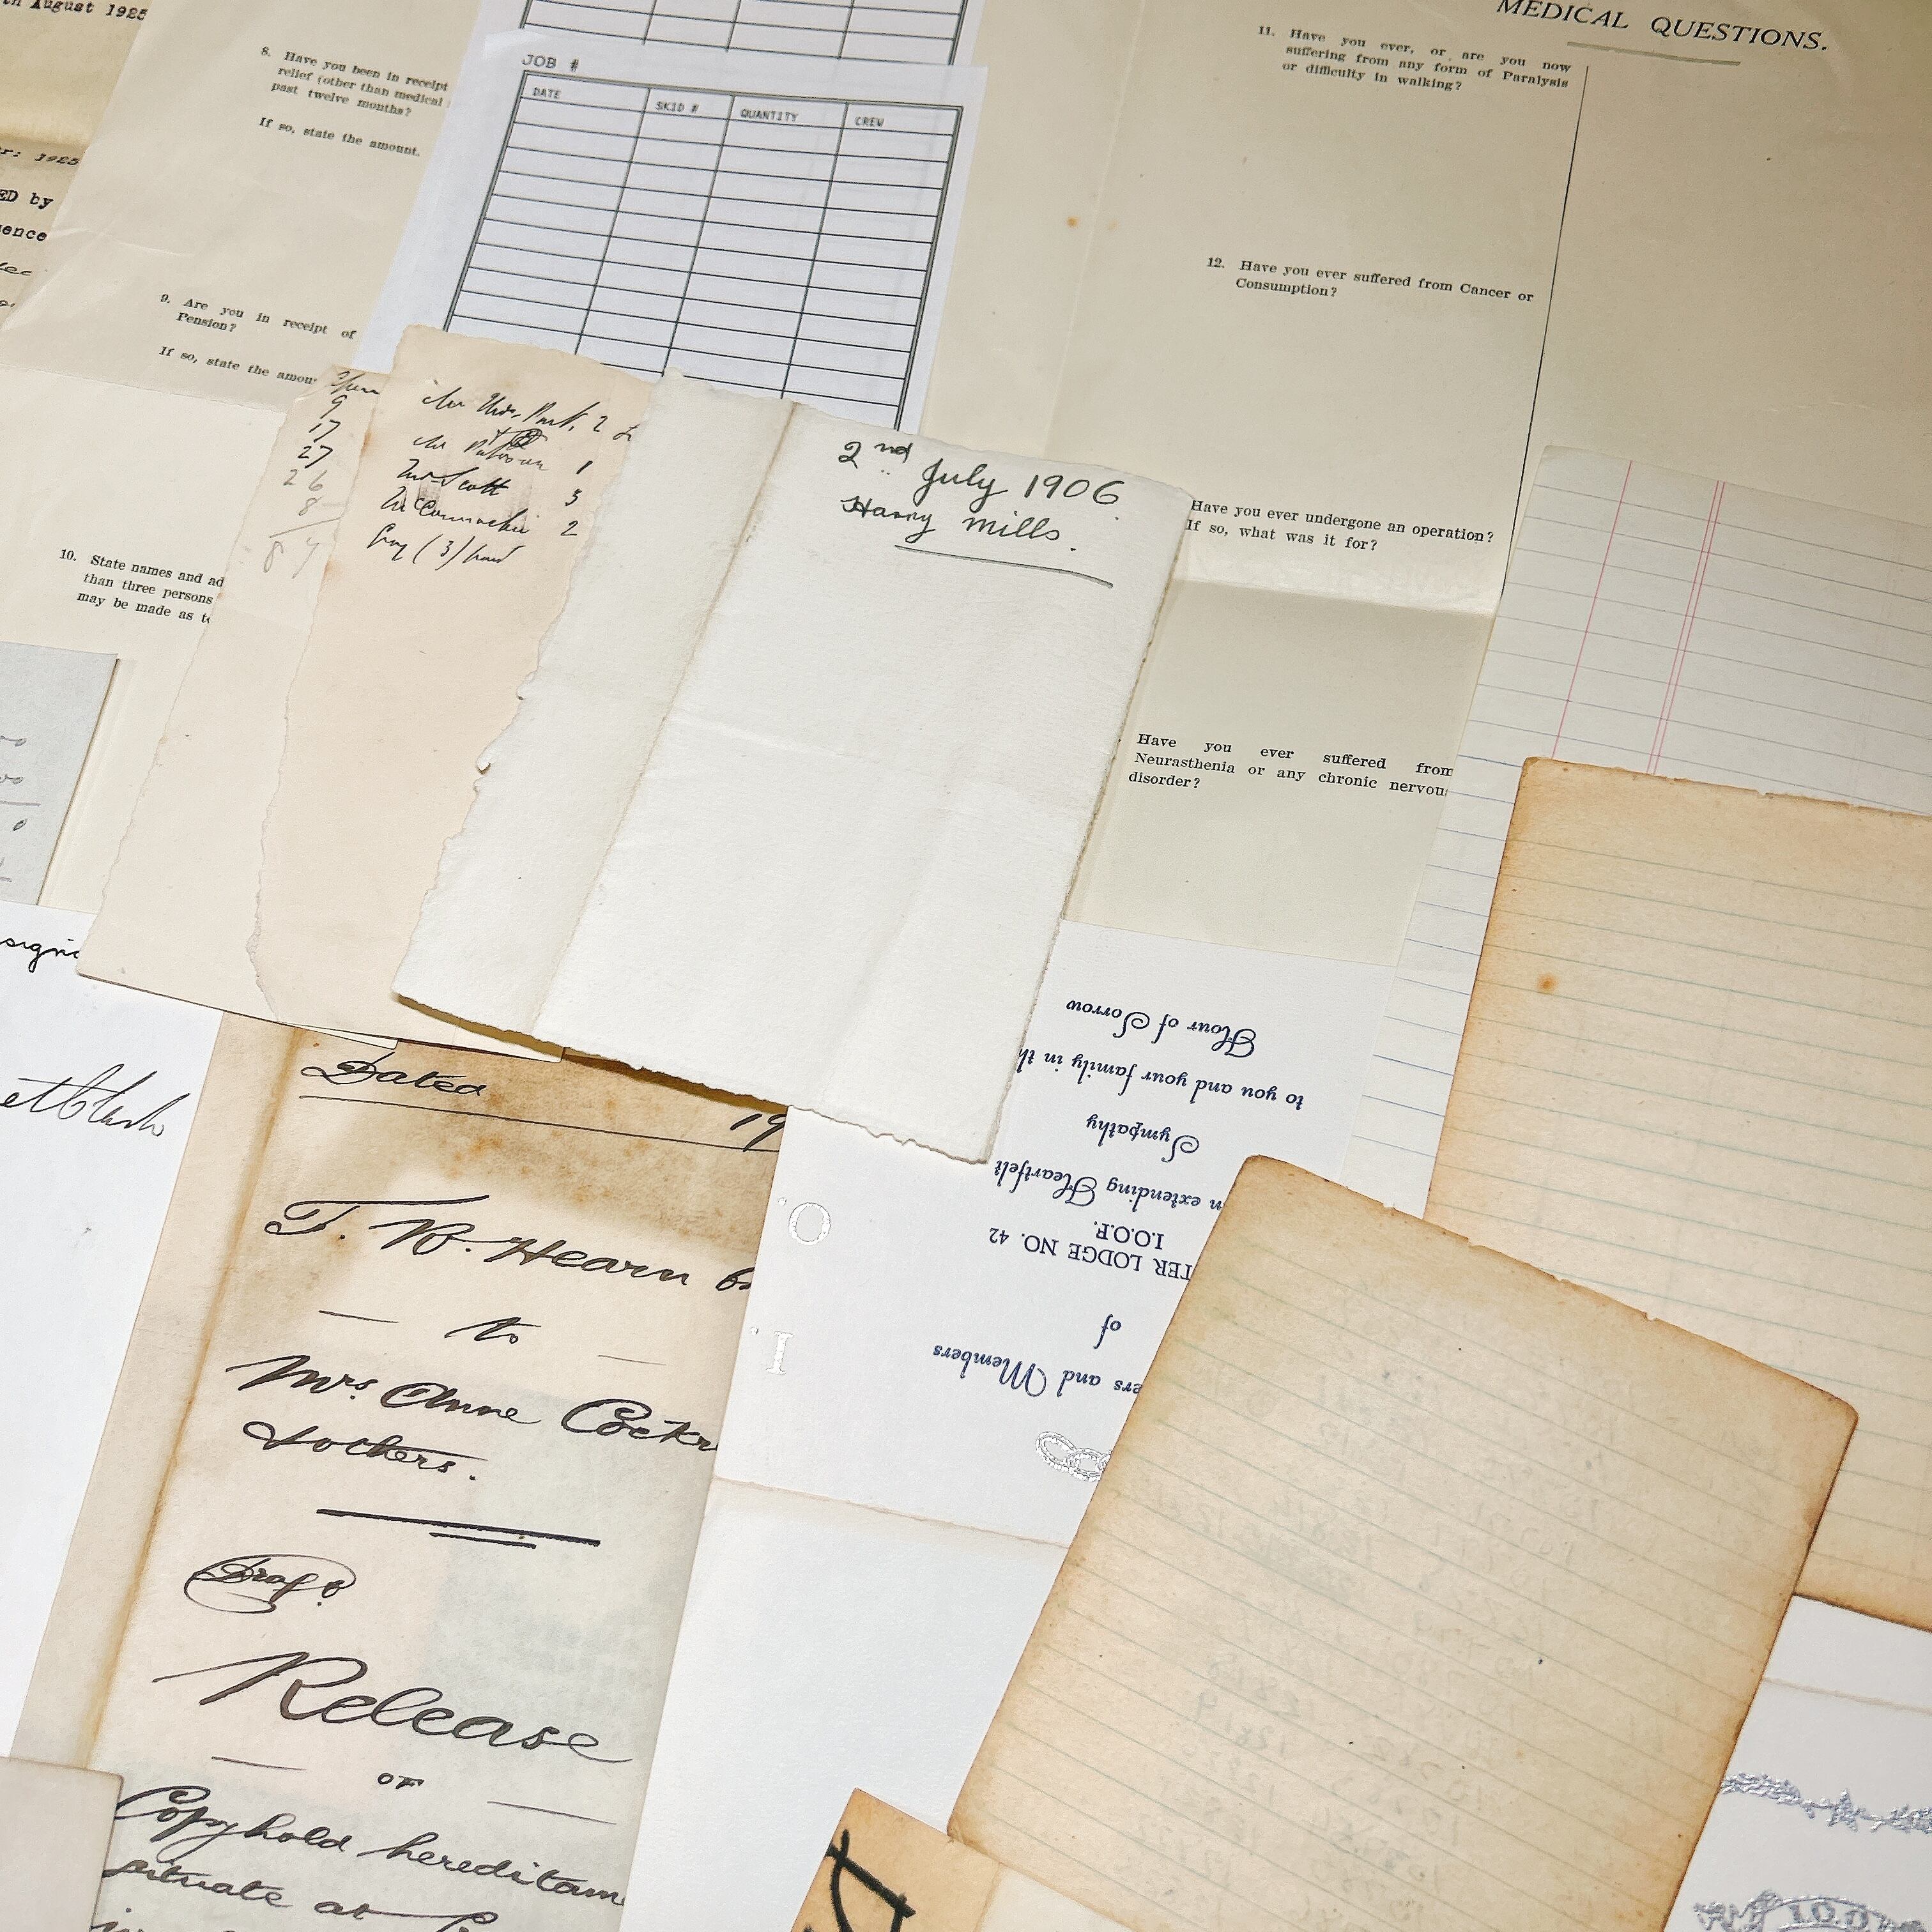 th August 1925
1925
ED by
gence
8. Have you been in receipt
relief (other than medical
past twelve months?
If so, state the amount.
9. Are you in receipt of
Pension?
If so, state the amou
10. State names and ad
than three persons
may be made as t
JOB #
DATE SKID # QUANTITY CREW
MEDICAL QUESTIONS.
11. Have you ever, or are you now
suffering from any form of Paralysis
or difficulty in walking?
12. Have you ever suffered from Cancer or
Consumption?
Have you ever undergone an operation?
If so, what was it for?
Have you ever suffered from
Neurasthenia or any chronic nervous
disorder?
9
17
27
26
8
87
2
1
Mr Scott 3
2
(3)
2nd July 1906
Harry Mills.
signe
Dated
19
T. W. Hearn
to
Mrs. Anne Cockr
others.
Draft
Release
OF
Copyhold hereditam
situate at
ers and Members
of
TER LODGE NO. 42
I.O.O.F.
n extending Heartfelt
Sympathy
to you and your family in th
Hour of Sorrow
I.
O.